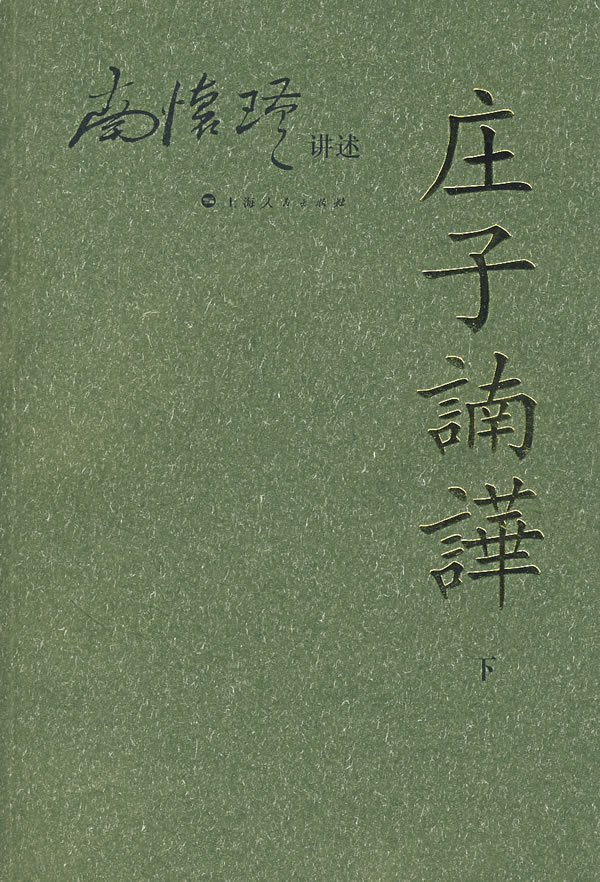 南懷瑾 讲述
上海人民出版社
庄子諵譁
下